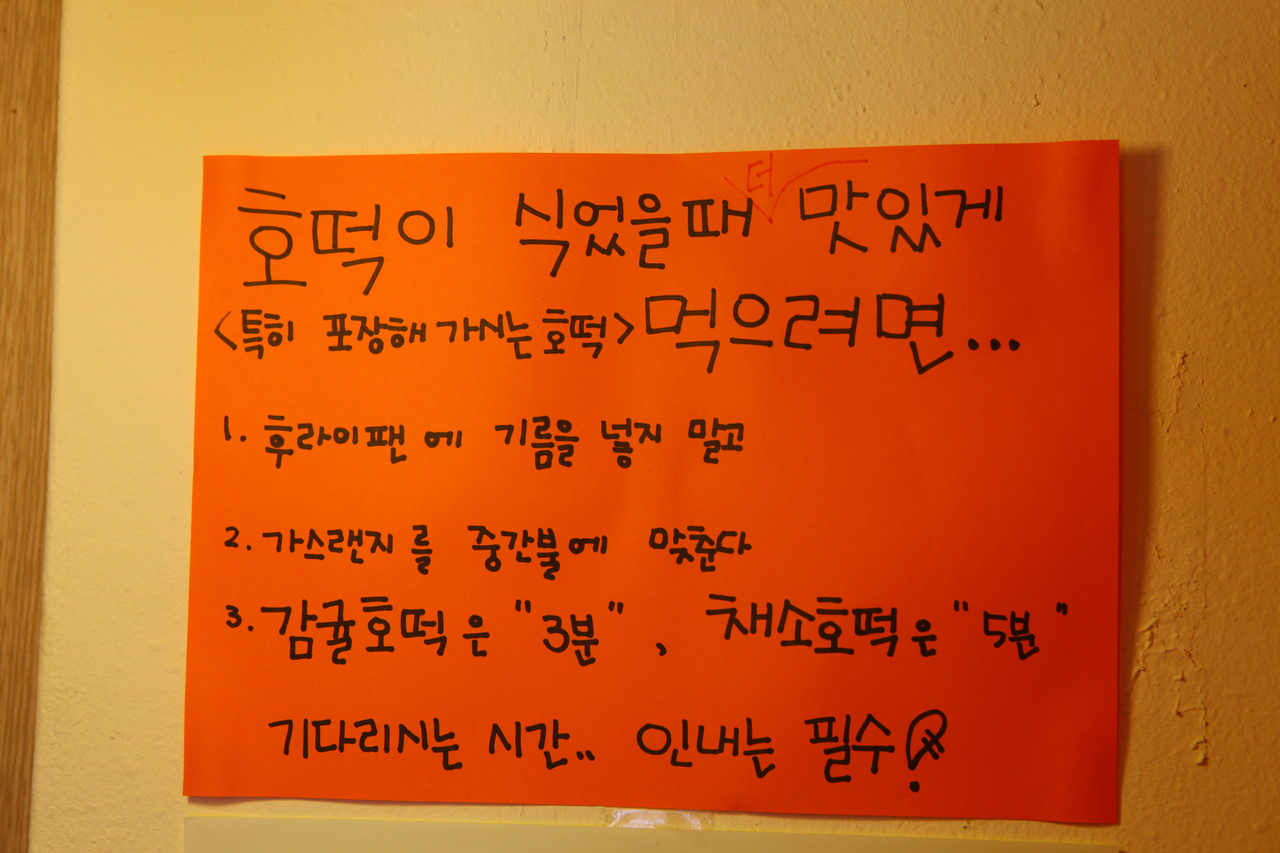 호떡이 식었을때 더 맛있게
<특히 포장해 가시는 호떡> 먹으려면...
1. 후라이팬에 기름을 넣지 말고
2. 가스랜지를 중간불에 맞춘다
3. 감귤호떡은 "3분", 채소호떡은 "5분"
기다리시는 시간.. 인내는 필수!